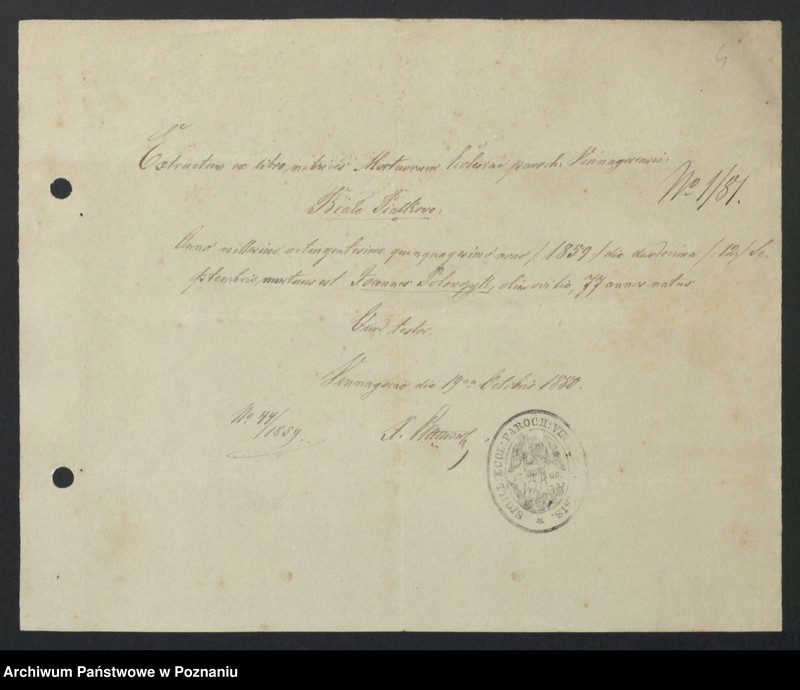 4
Extractum ex libro metrices Mortuorum Ecclesiae paroch. Vinnagorensis.
No 1/81.
Białe Piątkowo.
Anno millesimo octingentesimo quinquagesimo nono /:1859:/ die duodecima /:12:/ Se-
ptembris, mortuus est Joannes olim ovilio, 77 annos natus.
Quod testor.
Vinnagorae die 19na Octobris 1880.
No 44/1859.
SIGILL: ECCL: PAROCH:
Archiwum Państwowe w Poznaniu